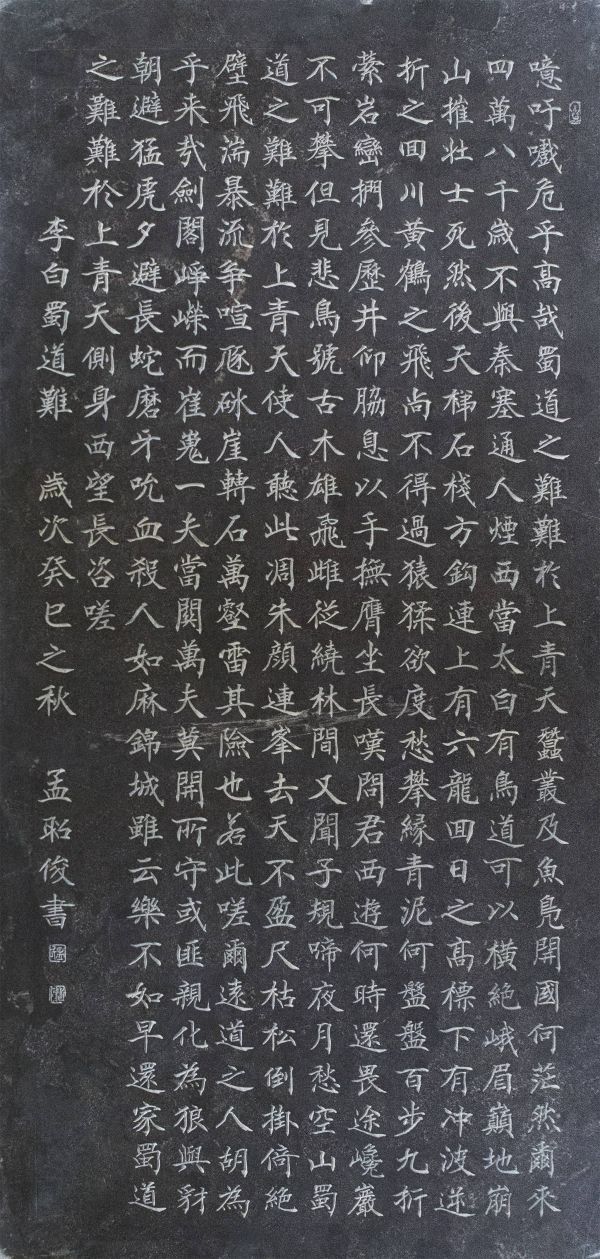 噫吁嚱危乎高哉蜀道之難難於上青天蠶叢及魚鳧開國何茫然爾來
四萬八千歲不與秦塞通人煙西當太白有鳥道可以橫絶峨眉巔地崩
山摧壯士死然後天梯石棧方鈎連上有六龍回日之高標下有冲波逆
折之回川黃鶴之飛尚不得過猿猱欲度愁攀緣青泥何盤盤百步九折
縈岩巒捫參歷井仰脇息以手撫膺坐長嘆問君西遊何時還畏途巉巖
不可攀但見悲鳥號古木雄飛雌從繞林間又聞子規啼夜月愁空山蜀
道之難難於上青天使人聽此凋朱顏連峯去天不盈尺枯松倒掛倚絶
壁飛湍暴流爭喧豗砯崖轉石萬壑雷其險也若此嗟爾遠道之人胡為
乎來哉劍閣崢嶸而崔嵬一夫當關萬夫莫開所守或匪親化為狼與豺
朝避猛虎夕避長蛇磨牙吮血殺人如麻錦城雖云樂不如早還家蜀道
之難難於上青天側身西望長咨嗟
李白蜀道難 歲次癸巳之秋 孟昭俊書